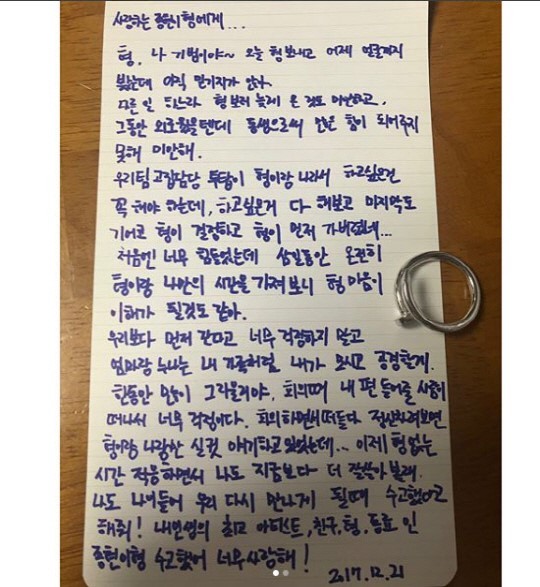 사랑하는 종현이형에게...
형. 나 기범이야~ 오늘 형 보내고 어제 얼굴까지
봤는데 아직 믿기지가 않아.
다른 일 하느라 형 보러 늦게 온 것도 미안하고,
그동안 외로웠을텐데 동생으로써 많은 힘이 되어주지
못해 미안해.
우리팀 고집담당 투탑이 형이랑 나라서 하고싶은건
꼭 해야 하는데, 하고싶은거 다 해보고 마지막도
기어코 형이 결정하고 형이 먼저 가버렸네...
처음엔 너무 힘들었는데 삼일동안 온전히
형이랑 나만의 시간을 가져보니 형 마음이
이해가 될것도 같아.
우리보다 먼저 간다고 너무 걱정하지 말고
엄마랑 누나는 내 가족처럼 내가 모시고 공경할게.
한동안 많이 그리울거야. 회의때 내 편 들어줄 사람이
떠나서 너무 걱정이다. 회의하면서 떠들다 정신차려보면
형이랑 나랑만 실컷 얘기하고 있었는데... 이제 형 없는
시간 적응하면서 나도 지금보다 더 잘 살아볼래.
나도 나이들어 우리 다시 만나게 될때 수고했다고
해줘! 내 인생의 최고 아티스트, 친구, 형, 동료 인
종현이형 수고했어 너무 사랑해!
2017.12.21